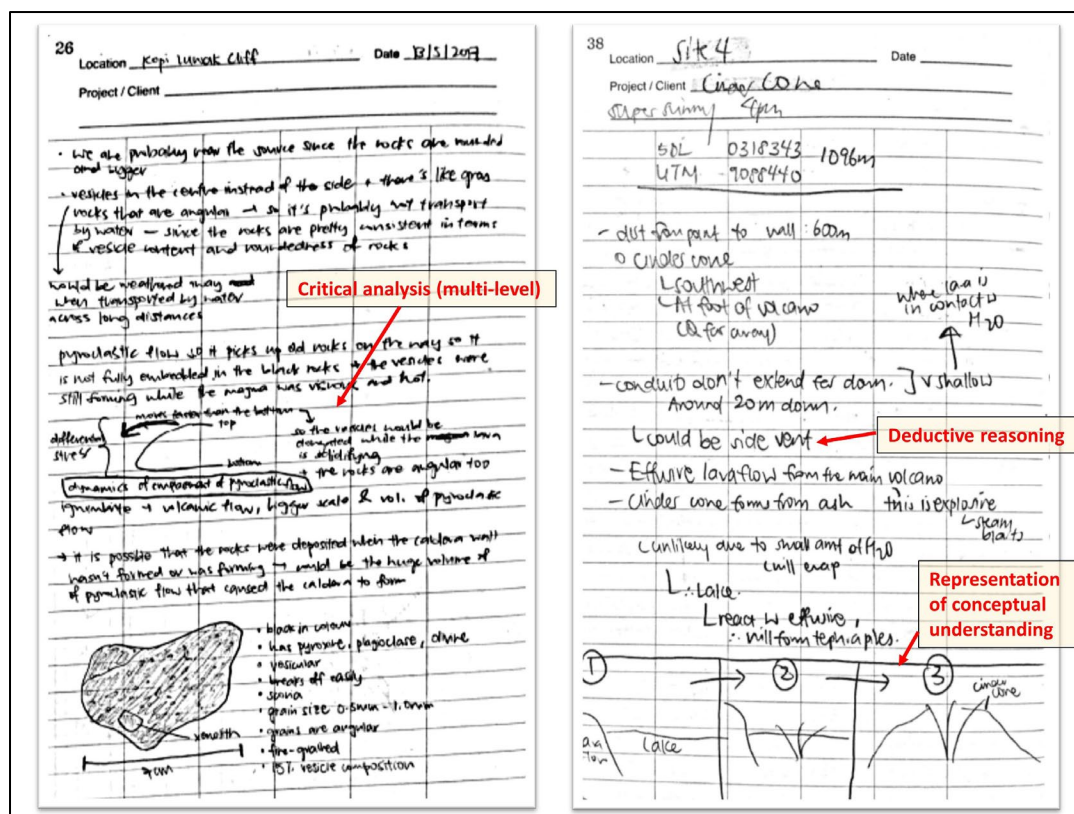 26
Location Kopi Luwak Cliff Date 13/5/2017
Project / Client
• we are probably near the source since the rocks are rounded
and bigger
• vesicles in the centre instead of the side + there's like gras
rocks that are angular → so it's probably not transport
by water – since the rocks are pretty consistent in terms
of vesicle content and roundedness of rocks
would be weathered away
when transported by water
across long distances
pyroclastic flow so it picks up old rocks on the way so it
is not fully embedded in the black rocks + the vesicles were
still forming while the magma was viscous and hot.
different
stress
moves faster than the bottom
top
bottom
so the vesicles would be
disrupted while the lava
is solidifying
+ the rocks are angular too
dynamics of component of pyroclastic flow
ignimbrite → volcanic flow, bigger scale & vol. of pyroclastic
flow
→ it is possible that the rocks were deposited when the caldera wall
hasn't formed or was forming → could be the huge volume of
of pyroclastic flow that caused the caldera to form
• black in colour
• has pyroxene, plagioclase, olivine
• vesicular
• breaks off easily
• grain size 0.5mm - 1.0mm
• grains are angular
• fine-grained
• 15% vesicle composition
xenolith
7cm
Critical analysis (multi-level)
38
Location Site 4 Date
Project / Client Cinder Cone
super sunny 4pm
50L 0318343 1096m
UTM 9088440
- dist from point to wall : 600m
o cinder cone
southwest
At foot of volcano
(Q far away)
where lava is
in contact w
H2O
- conduit don't extend far down. } v shallow
Around 20m down.
could be side vent
Deductive reasoning
- Effusive lava flow from the main volcano
- Cinder cone forms from ash this is explosive
steam
blasts
unlikely due to small amt of H2O
(will evap
∴ Lake
react w effusive,
∴ will form tephra
Representation
of conceptual
understanding
1 → 2 → 3
lake
cinder
cone